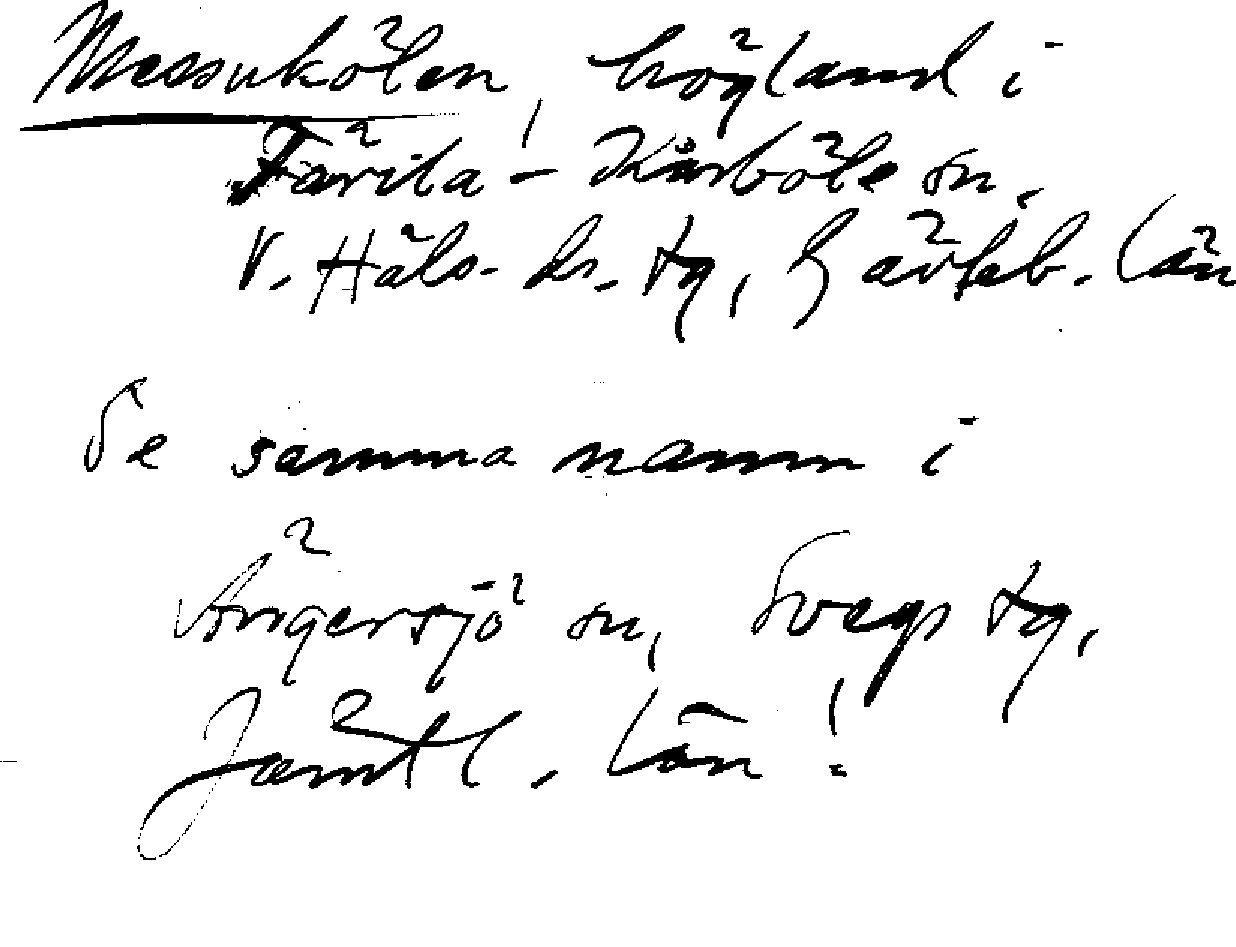 Messukölen, högland i
Färila - Kårböle sn.
V. Häls. ds. tg, Gävleb. län
Se samma namn i
Ängersjö sn, Svegs tg,
Jämtl. län!